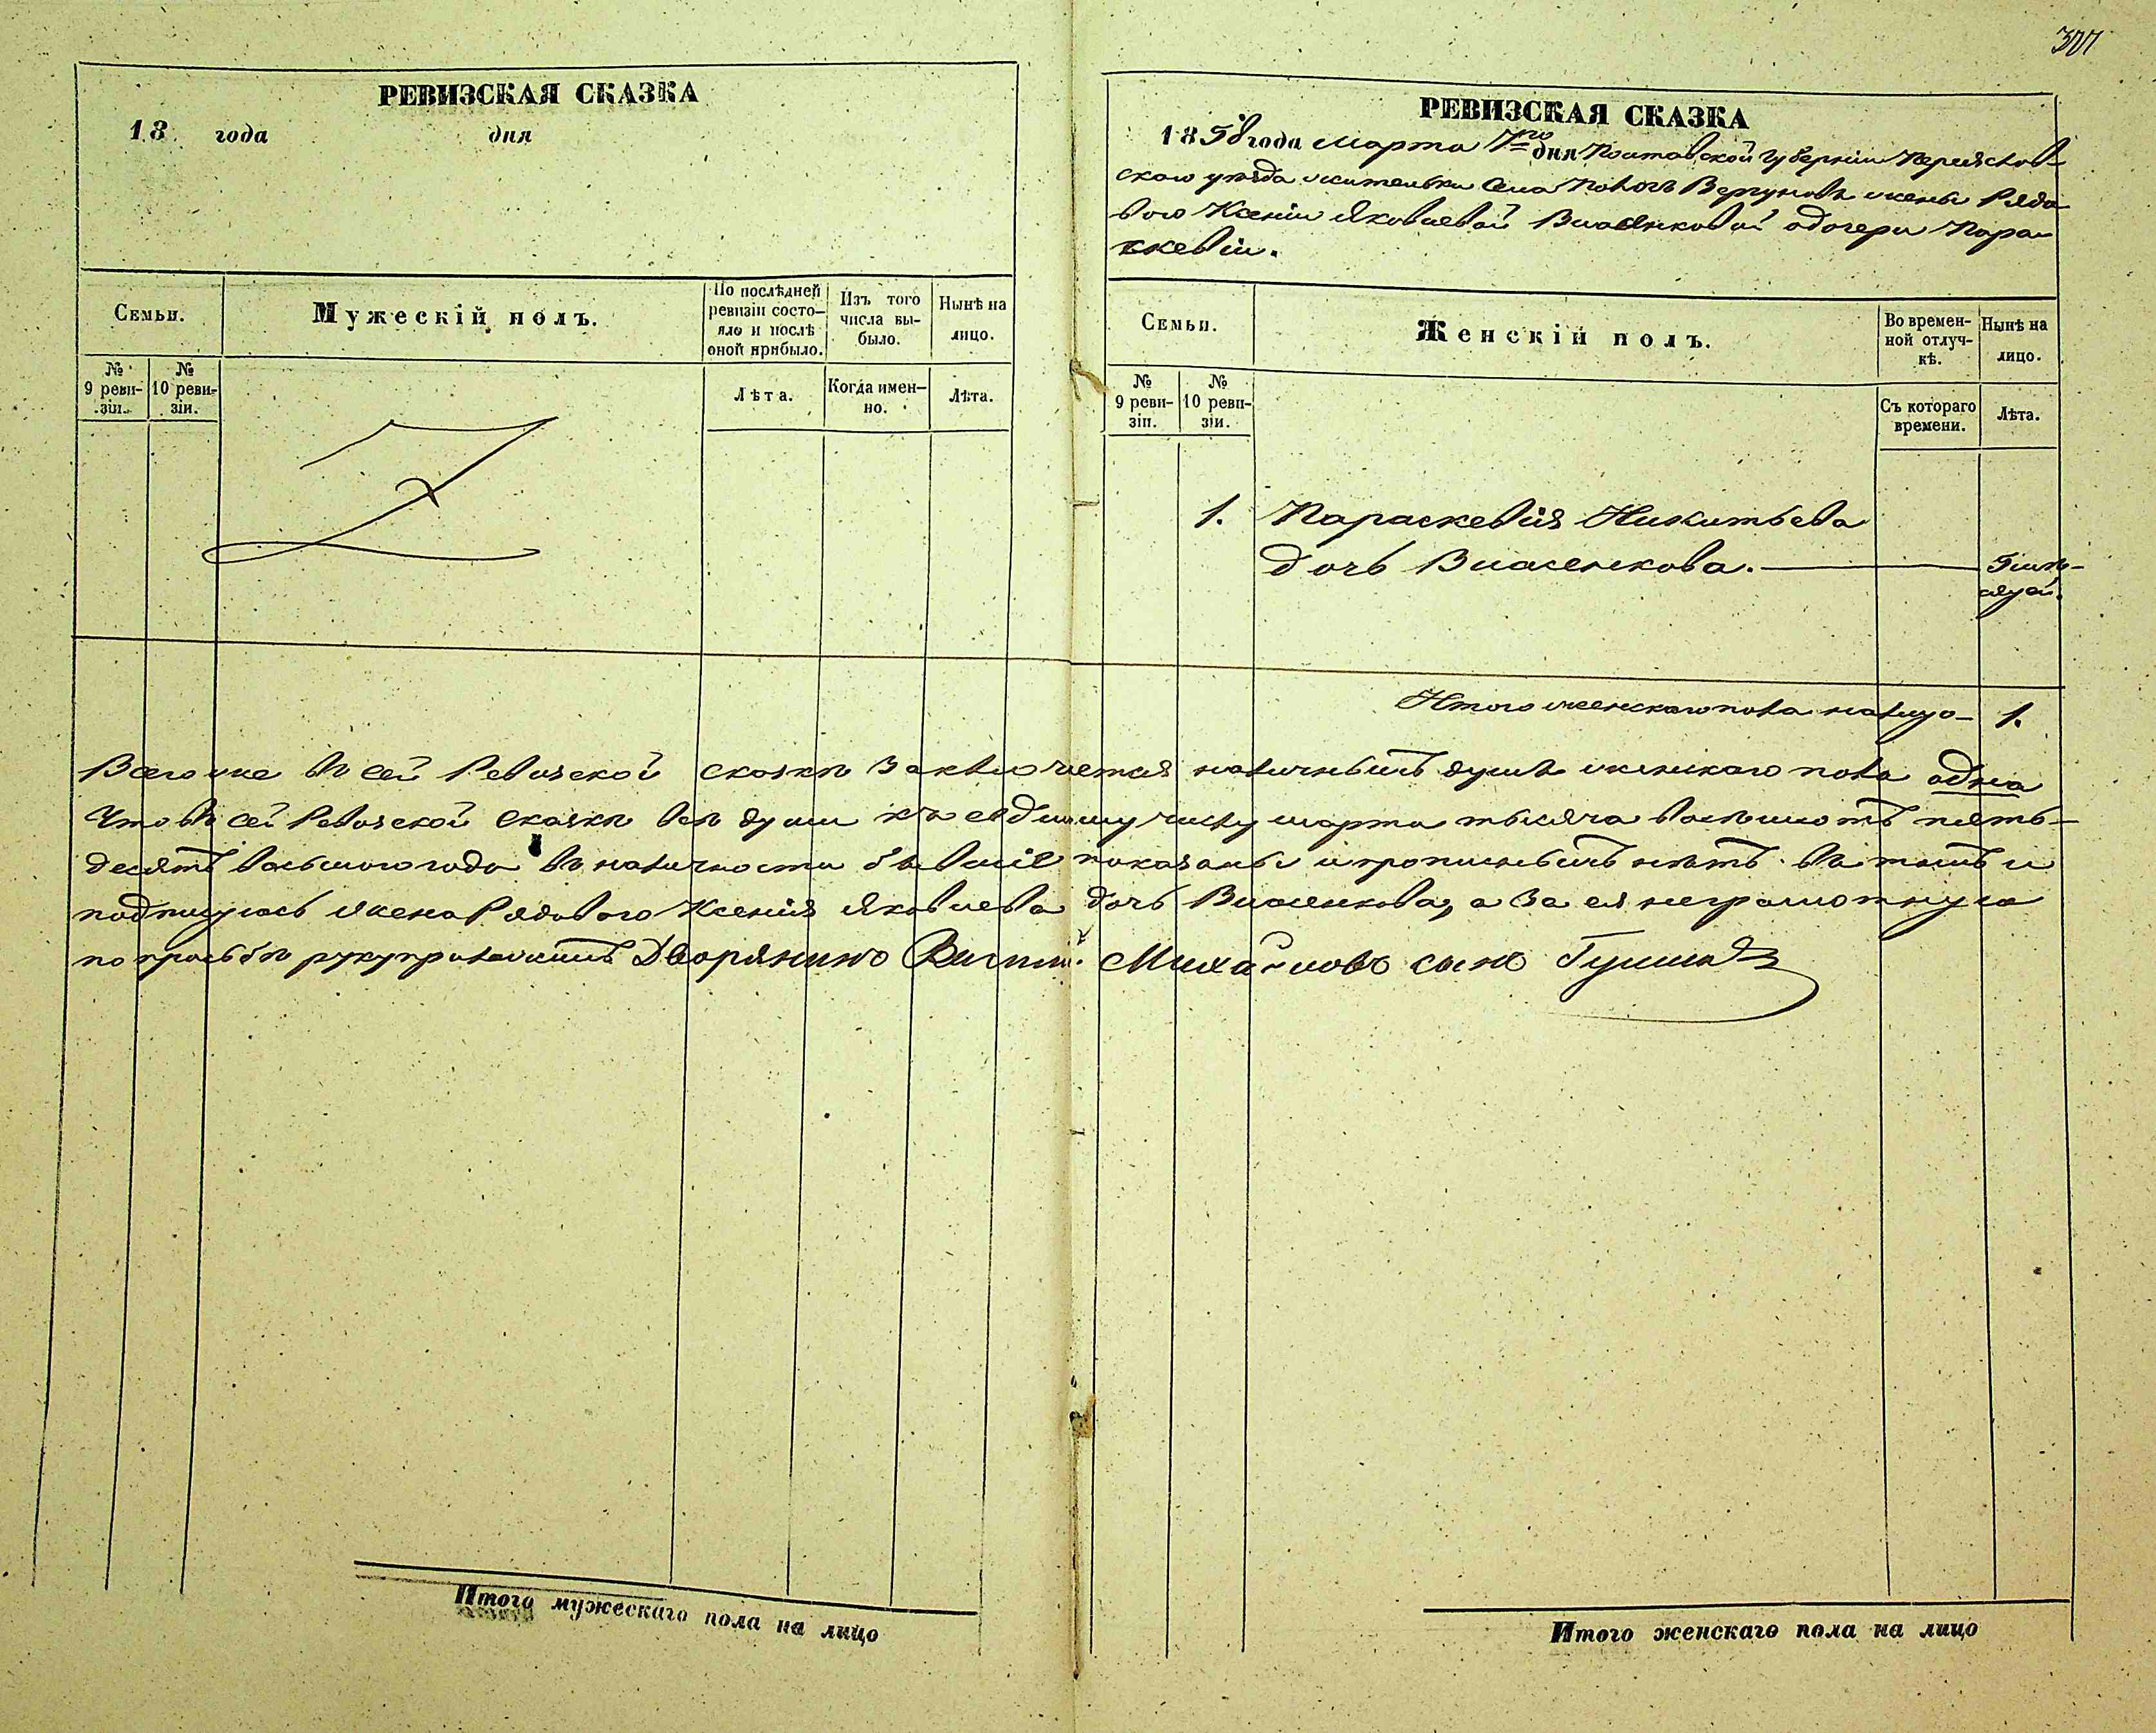 РЕВИЗСКАЯ СКАЗКА
18 года дня
Семьи.
Мужескій полъ.
По послѣдней ревизіи состояло и послѣ оной прибыло.
Изъ того числа выбыло.
Нынѣ на лицо.
№ 9 ревизіи.
№ 10 ревизіи.
Лѣта.
Когда именно.
Лѣта.
Итого мужескаго пола на лицо
РЕВИЗСКАЯ СКАЗКА
1858 года Марта 7го дня Полтавской Губерніи Переяслов-
скаго уѣзда жительки села Пологъ Вергуновъ жены Рядо
вого Ксеніи Яковлевой Власенковой о дочери Пара-
скевіи.
Семьи.
Женскій полъ.
Во временной отлучкѣ.
Нынѣ на лицо.
№ 9 ревизіи.
№ 10 ревизіи.
Съ котораго времени.
Лѣта.
1. Параскевія Никитьева
дочь Власенкова.
Итого женскаго пола на лицо 1.
Всего же въ сей Ревизской сказкѣ заключается наличныхъ душъ женскаго пола одна
Что въ сей Ревизской сказкѣ всѣ души къ седьмому числу марта тысяча восемьсотъ пять-
десятъ восьмого года въ наличности бывшіе показаны и прописныхъ нѣтъ въ томъ и
подписуюсь жена Рядового Ксенія Яковлева дочь Власенкова, а за ея неграмотную
по прозьбѣ рукуприложилъ Дворянинъ Михайловъ сынъ
Итого женскаго пола на лицо